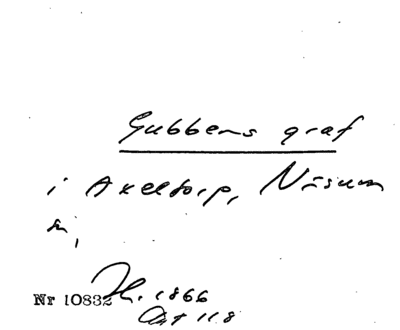 Gubbens graf
i Axeltorp, Näsum
sn,
Nr 10832 H. 1866
Ant 118